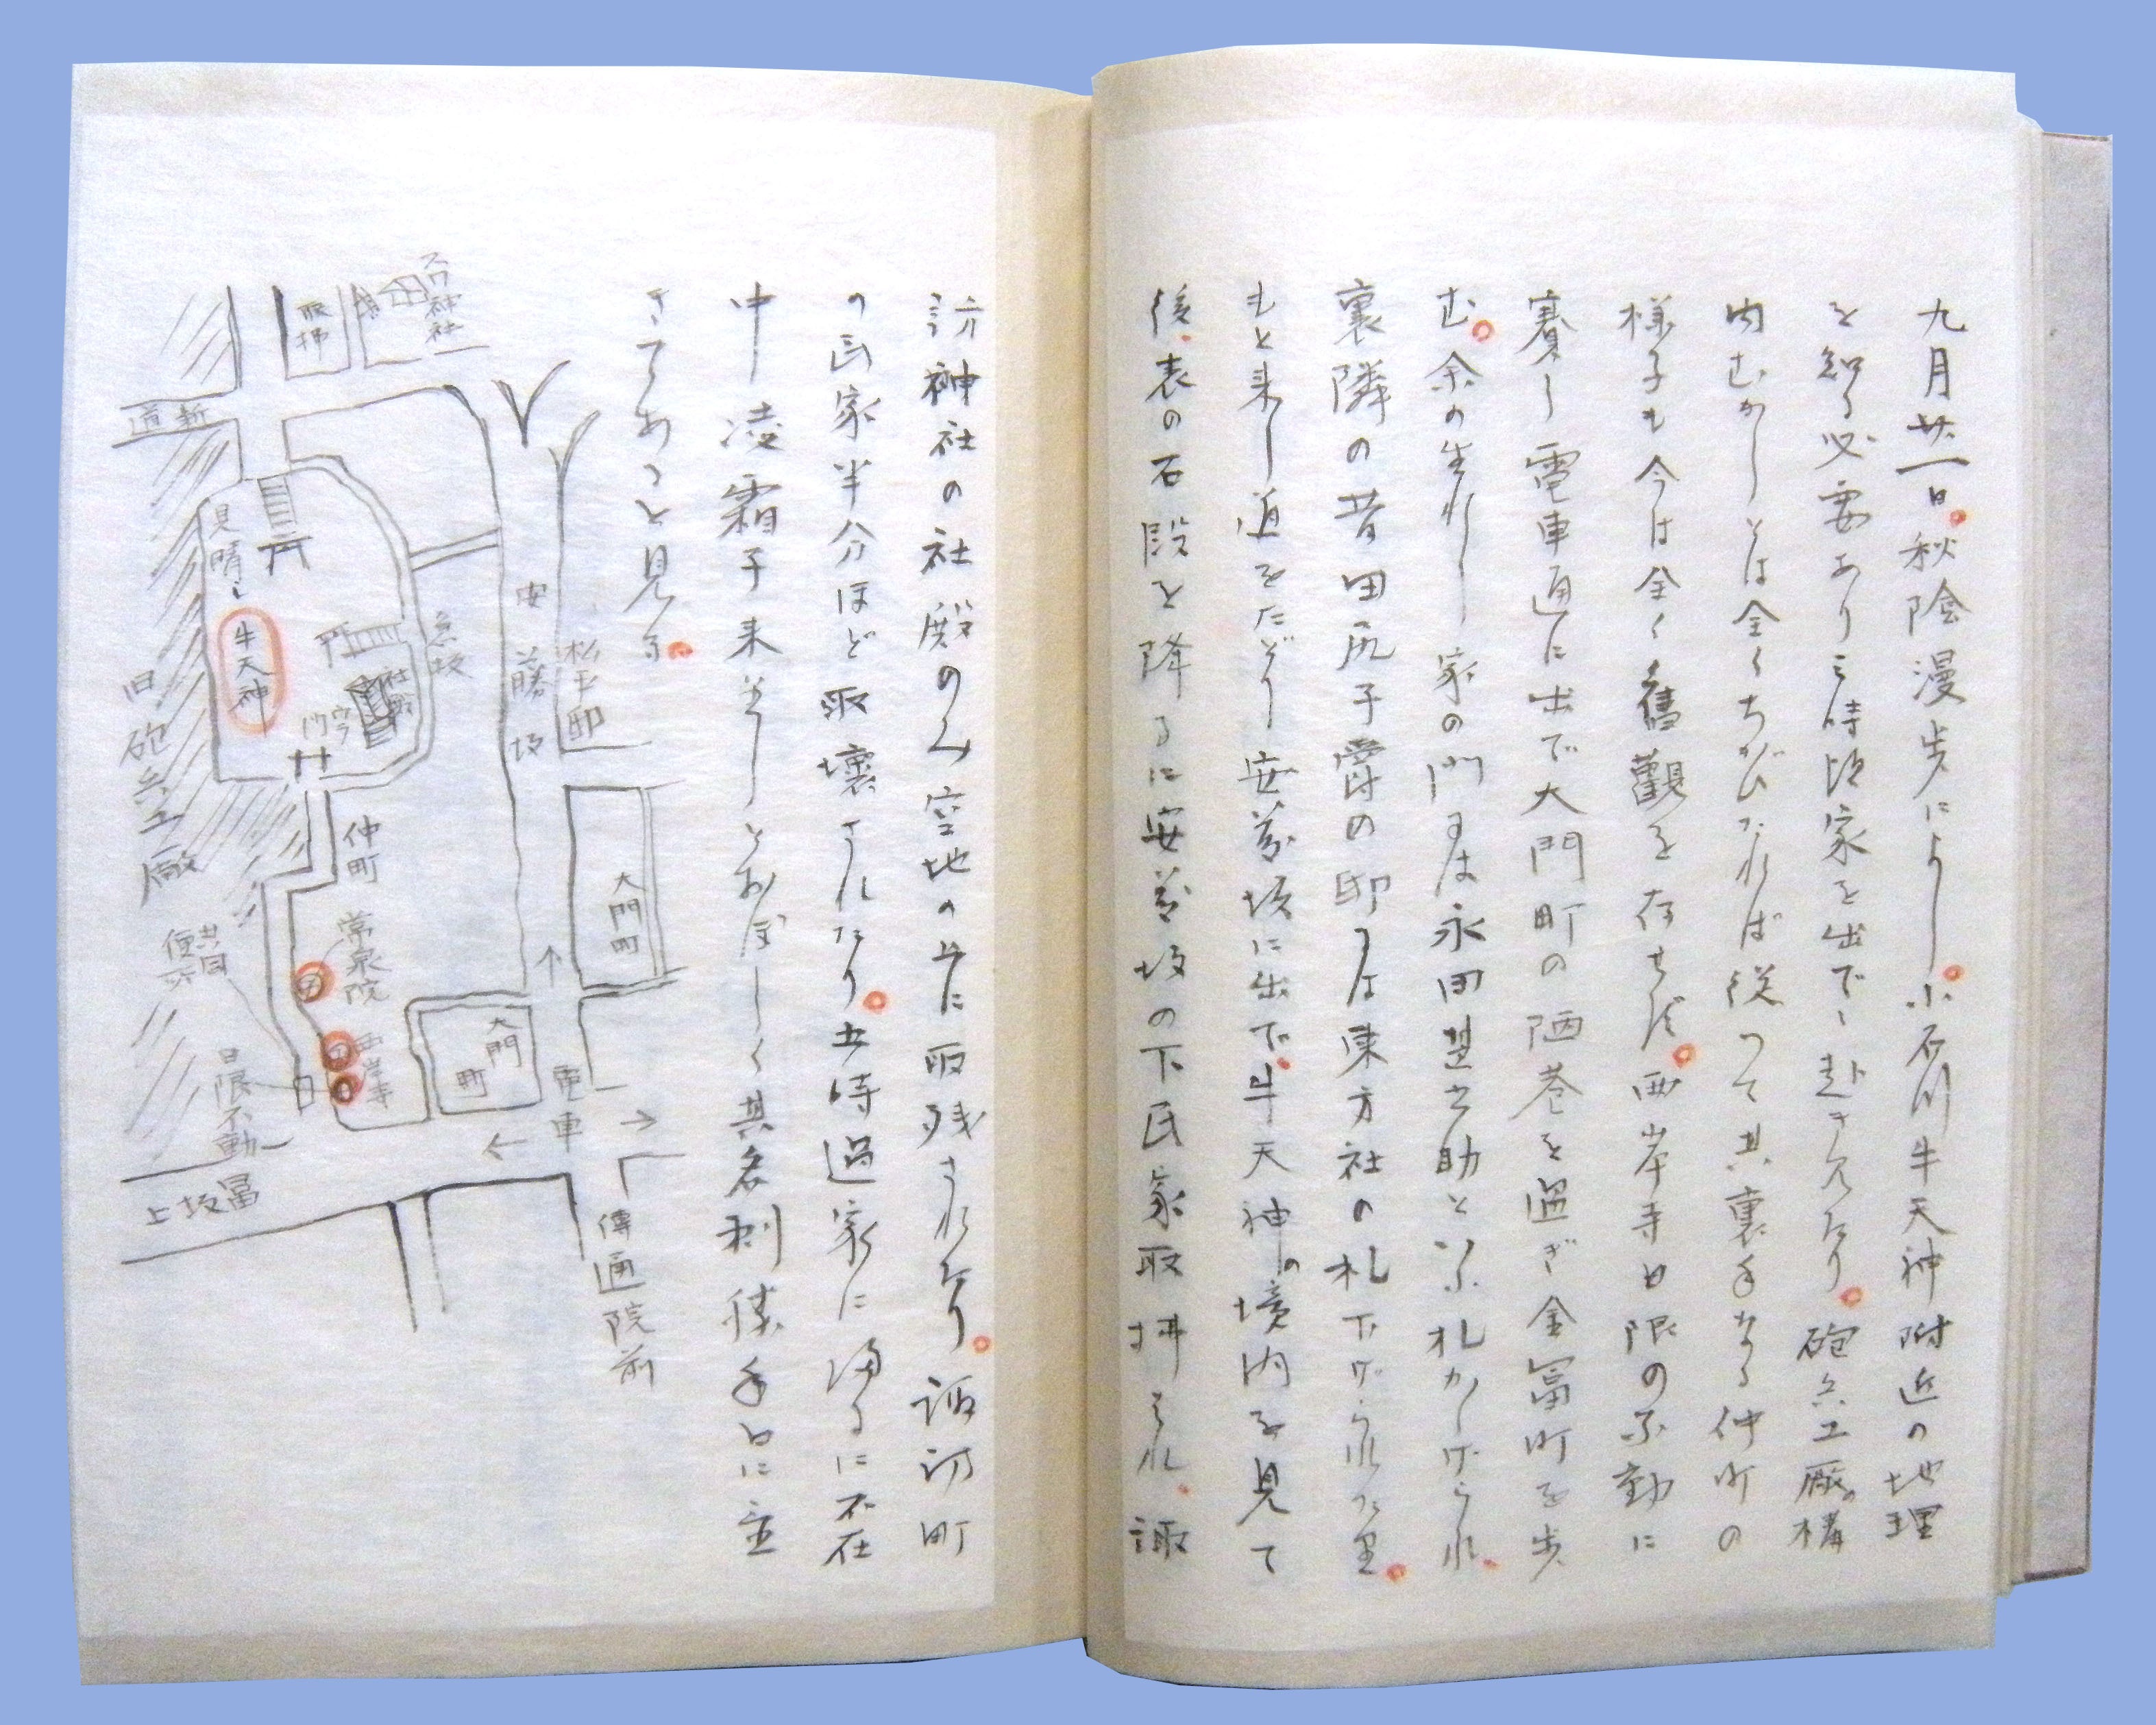 九月廿一日。秋陰漫歩によし。小石川牛天神附近の地理
を知る必要あり三時頃家を出で、赴きたり。砲兵工廠の構
内むかしとは全くちがひたれば従つて其裏手なる仲町の
様子も今は全く舊觀を存せず。西岸寺日限の不動に
賽し電車通に出で大門町の陋巷を過ぎ金冨町を歩
む。余の生れし家の門には永田基之助といふ札かゝげられ、
裏隣の昔田尻子爵の邸には東方社の札下げられたり。
もと来し道をたどり安藤坂に出で、牛天神の境内を見て
後、表の石段を降るに安藤坂の下民家取拂はれ、諏
訪神社の社殿のみ空地の上に取残されたり。諏訪町
の民家半分ほど取壊されたり。五時過家に帰るに不在
中凌霜子来りしとおぼしく其名刺勝手口に置
きてあるを見る。
スワ神社
取拂
新道
見晴し
牛天神
急坂
社殿
安藤坂
松平邸
旧砲兵工廠
仲町
大門町
常泉院
共同便所
西岸寺
日限不動
大門町
電車
冨坂上
傳通院前